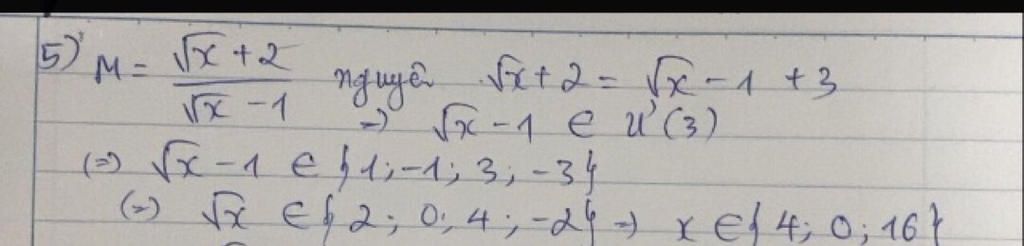 5) M = (√x + 2)/(√x - 1) nguyên √x + 2 = √x - 1 + 3
=> √x - 1 ∈ Ư(3)
(=) √x - 1 ∈ {1; -1; 3; -3}
(=) √x ∈ {2; 0; 4; -2} => x ∈ {4; 0; 16}